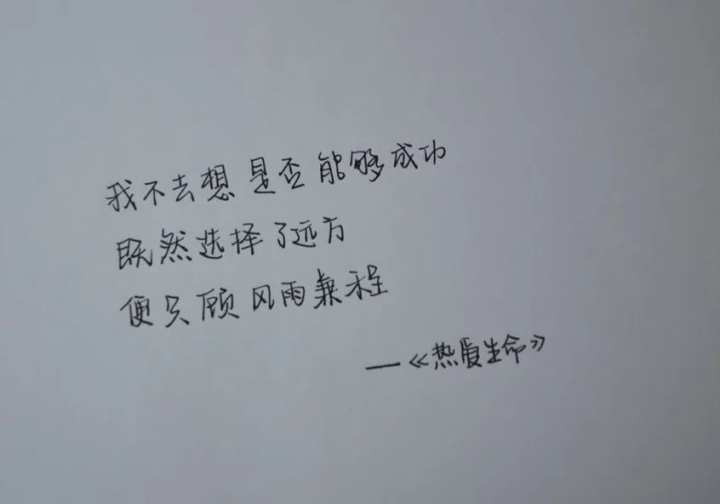 我不去想是否能够成功
既然选择了远方
便只顾风雨兼程
—《热爱生命》